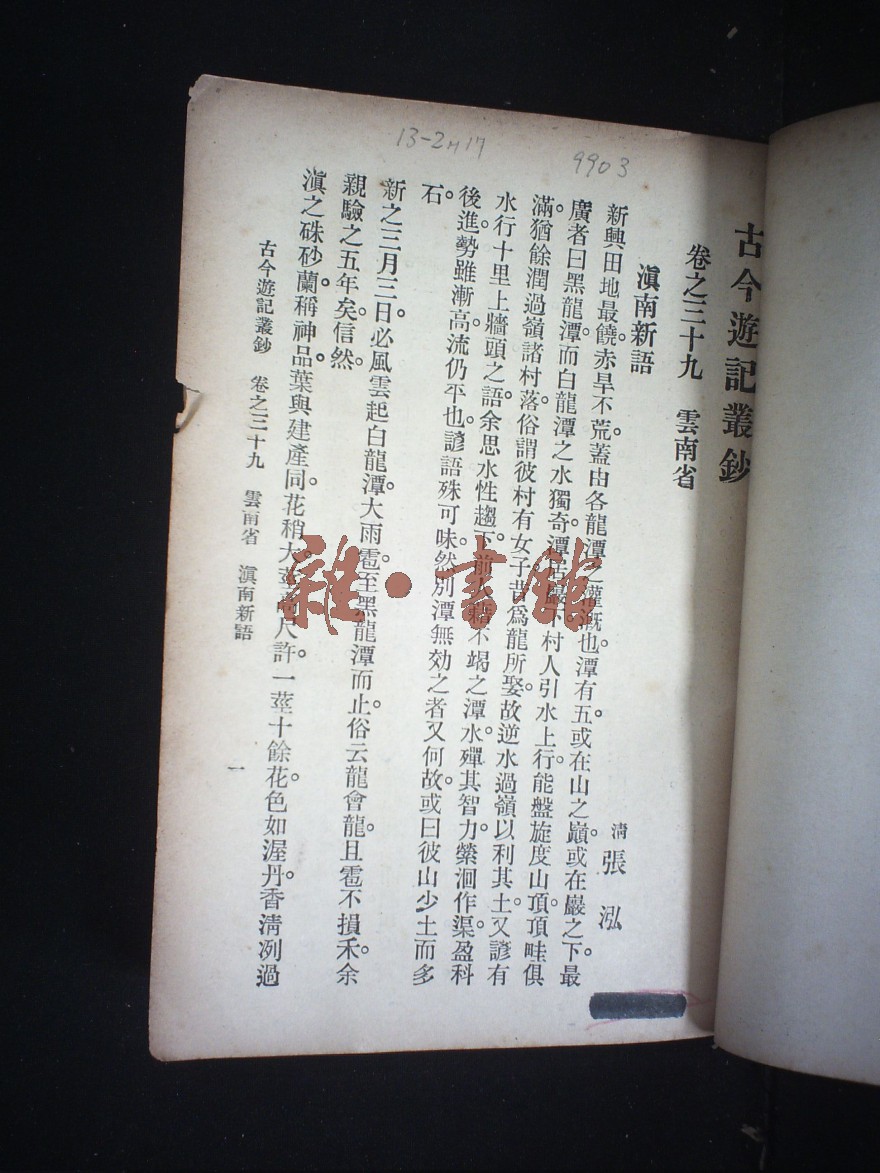 13-2H17
9903
古今遊記叢鈔
卷之三十九 雲南省
滇南新語
清 張泓
新興田地最饒。赤旱不荒。蓋由各龍潭之灌溉也。潭有五。或在山之巔。或在巖之下。最
廣者曰黑龍潭。而白龍潭之水獨奇。潭居巖下。村人引水上行。能盤旋度山頂。頂畦俱
滿。猶餘潤過嶺諸村落。俗謂彼村有女子。昔爲龍所娶。故逆水過嶺以利其土。又諺有
水行十里上牆頭之語。余思水性趨下。前人藉不竭之潭水。殫其智力。縈洄作渠。盈科
後進。勢雖漸高。流仍平也。諺語殊可味。然別潭無効之者。又何故。或曰彼山少土而多
石。
新之三月三日。必風雲起白龍潭。大雨雹。至黑龍潭而止。俗云龍會龍。且雹不損禾。余
親驗之五年矣。信然。
滇之硃砂蘭。稱神品。葉與建產同。花稍大。莖高尺許。一莖十餘花。色如渥丹。香清冽過
古今遊記叢鈔 卷之三十九 雲南省 滇南新語
一
雜·書館